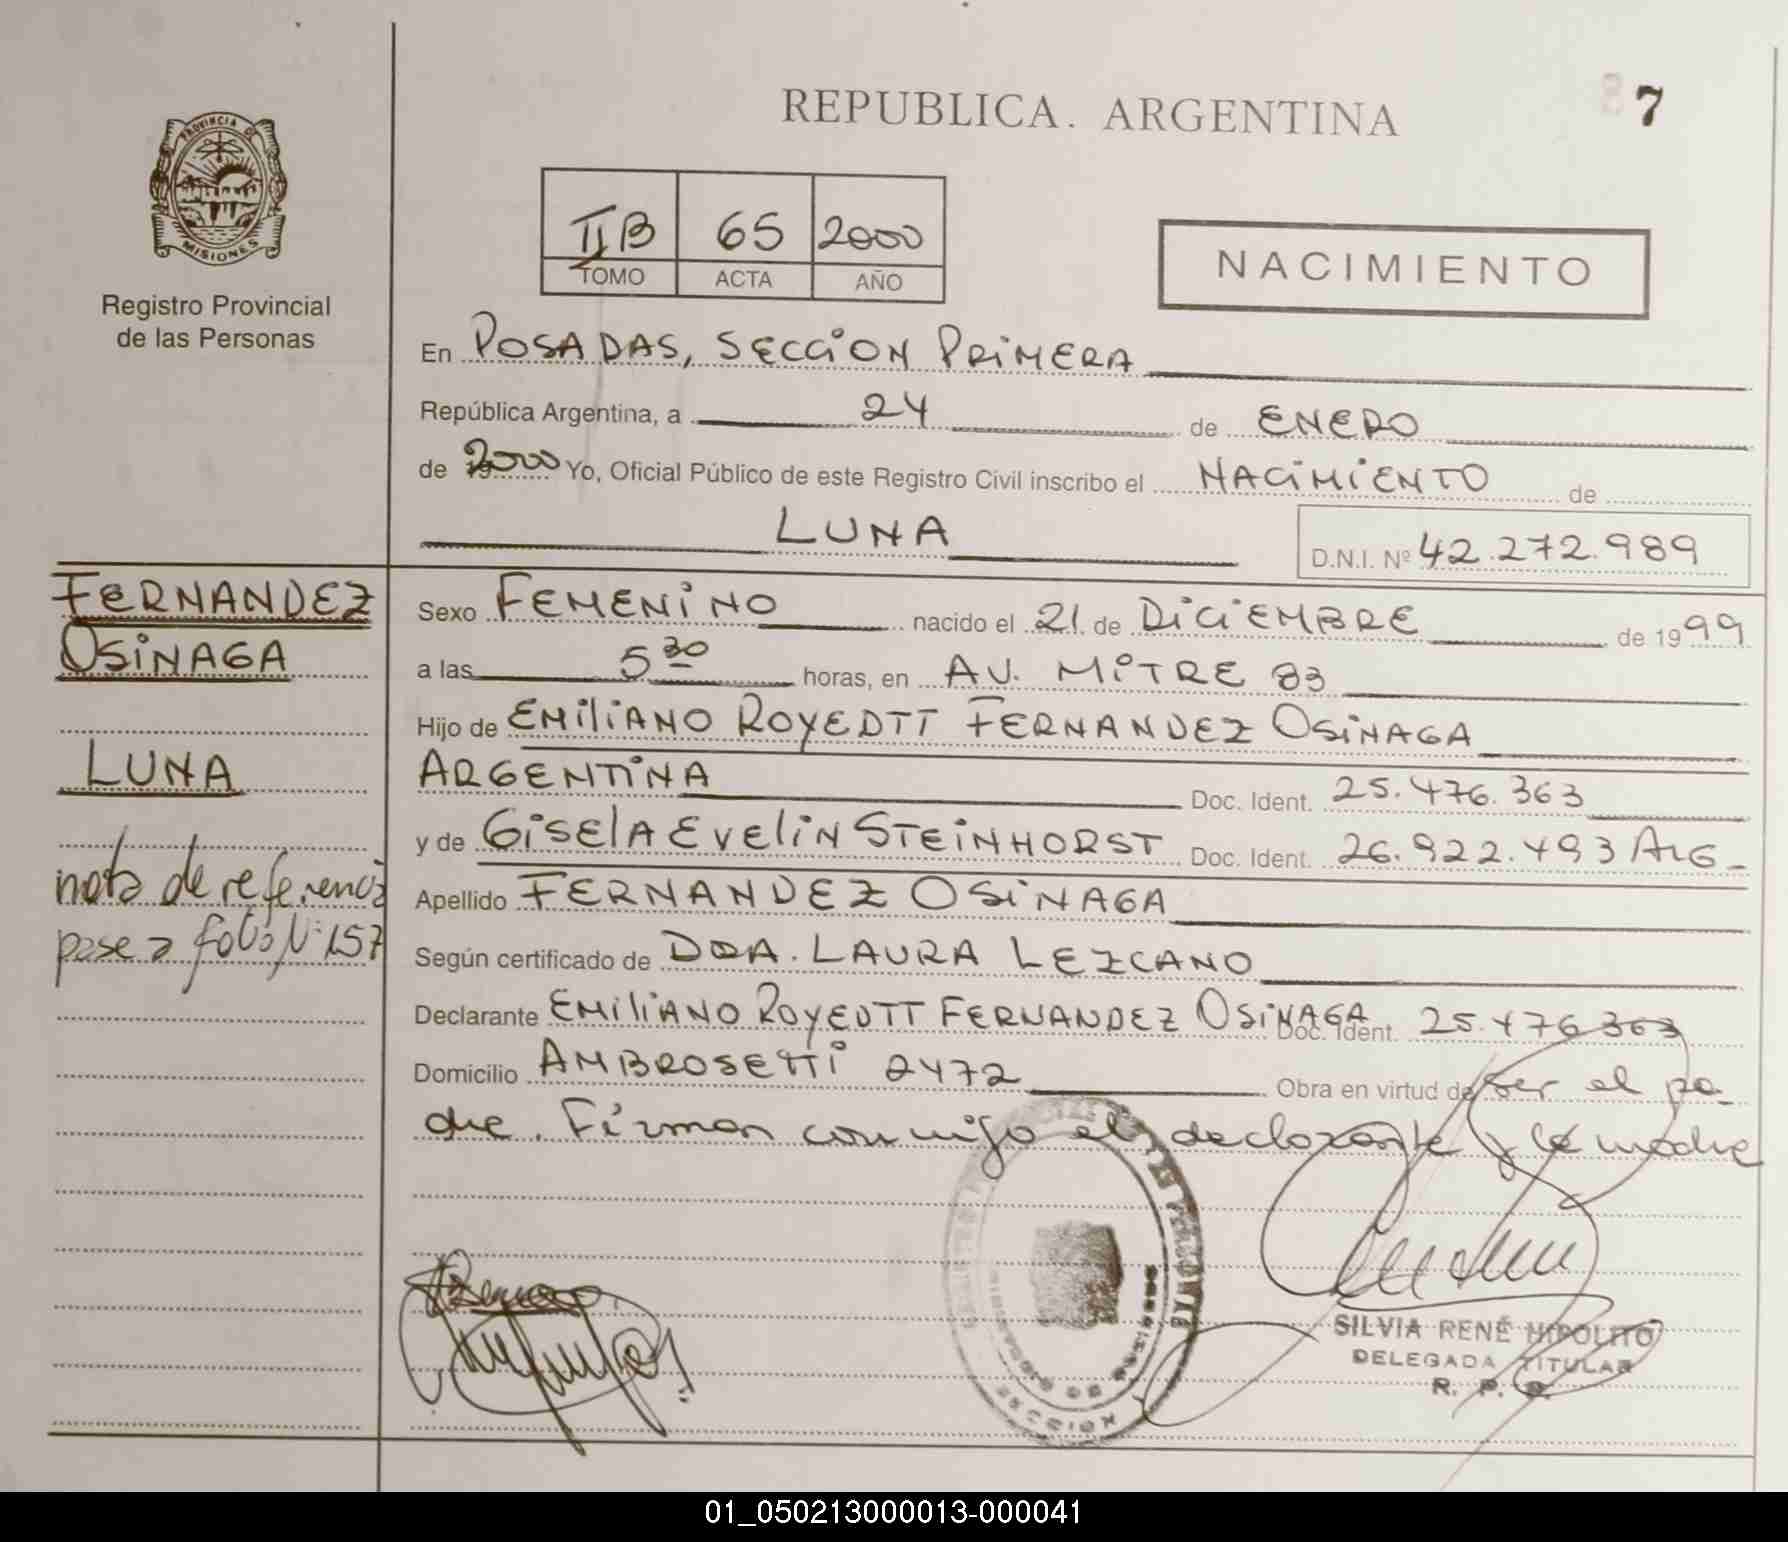 REPUBLICA. ARGENTINA
7
PROVINCIA DE
MISIONES
Registro Provincial
de las Personas
II B 65 2000
TOMO ACTA AÑO
NACIMIENTO
En POSADAS, SECCION PRIMERA
República Argentina, a 24 de ENERO
de 2000 Yo, Oficial Público de este Registro Civil inscribo el NACIMIENTO de
LUNA D.N.I. Nº 42.272.989
FERNANDEZ
OSINAGA
LUNA
nota de referencia
pase a folio Nº 157
Sexo FEMENINO nacido el 21 de DICIEMBRE de 1999
a las 5 30 horas, en AV. MITRE 83
Hijo de EMILIANO ROYEDTT FERNANDEZ OSINAGA
ARGENTINA Doc. Ident. 25.476.363
y de GISELA EVELIN STEINHORST Doc. Ident. 26.922.493 ARG_
Apellido FERNANDEZ OSINAGA
Según certificado de DRA. LAURA LEZCANO
Declarante EMILIANO ROYEDTT FERNANDEZ OSINAGA Doc. Ident. 25.476363
Domicilio AMBROSETTI 2472 Obra en virtud de ser el pa_
dre. Firman conmigo el declarante y la madre
SILVIA RENÉ HIPOLITO
DELEGADA TITULAR
R. P. P.
SECCION
01_050213000013-000041